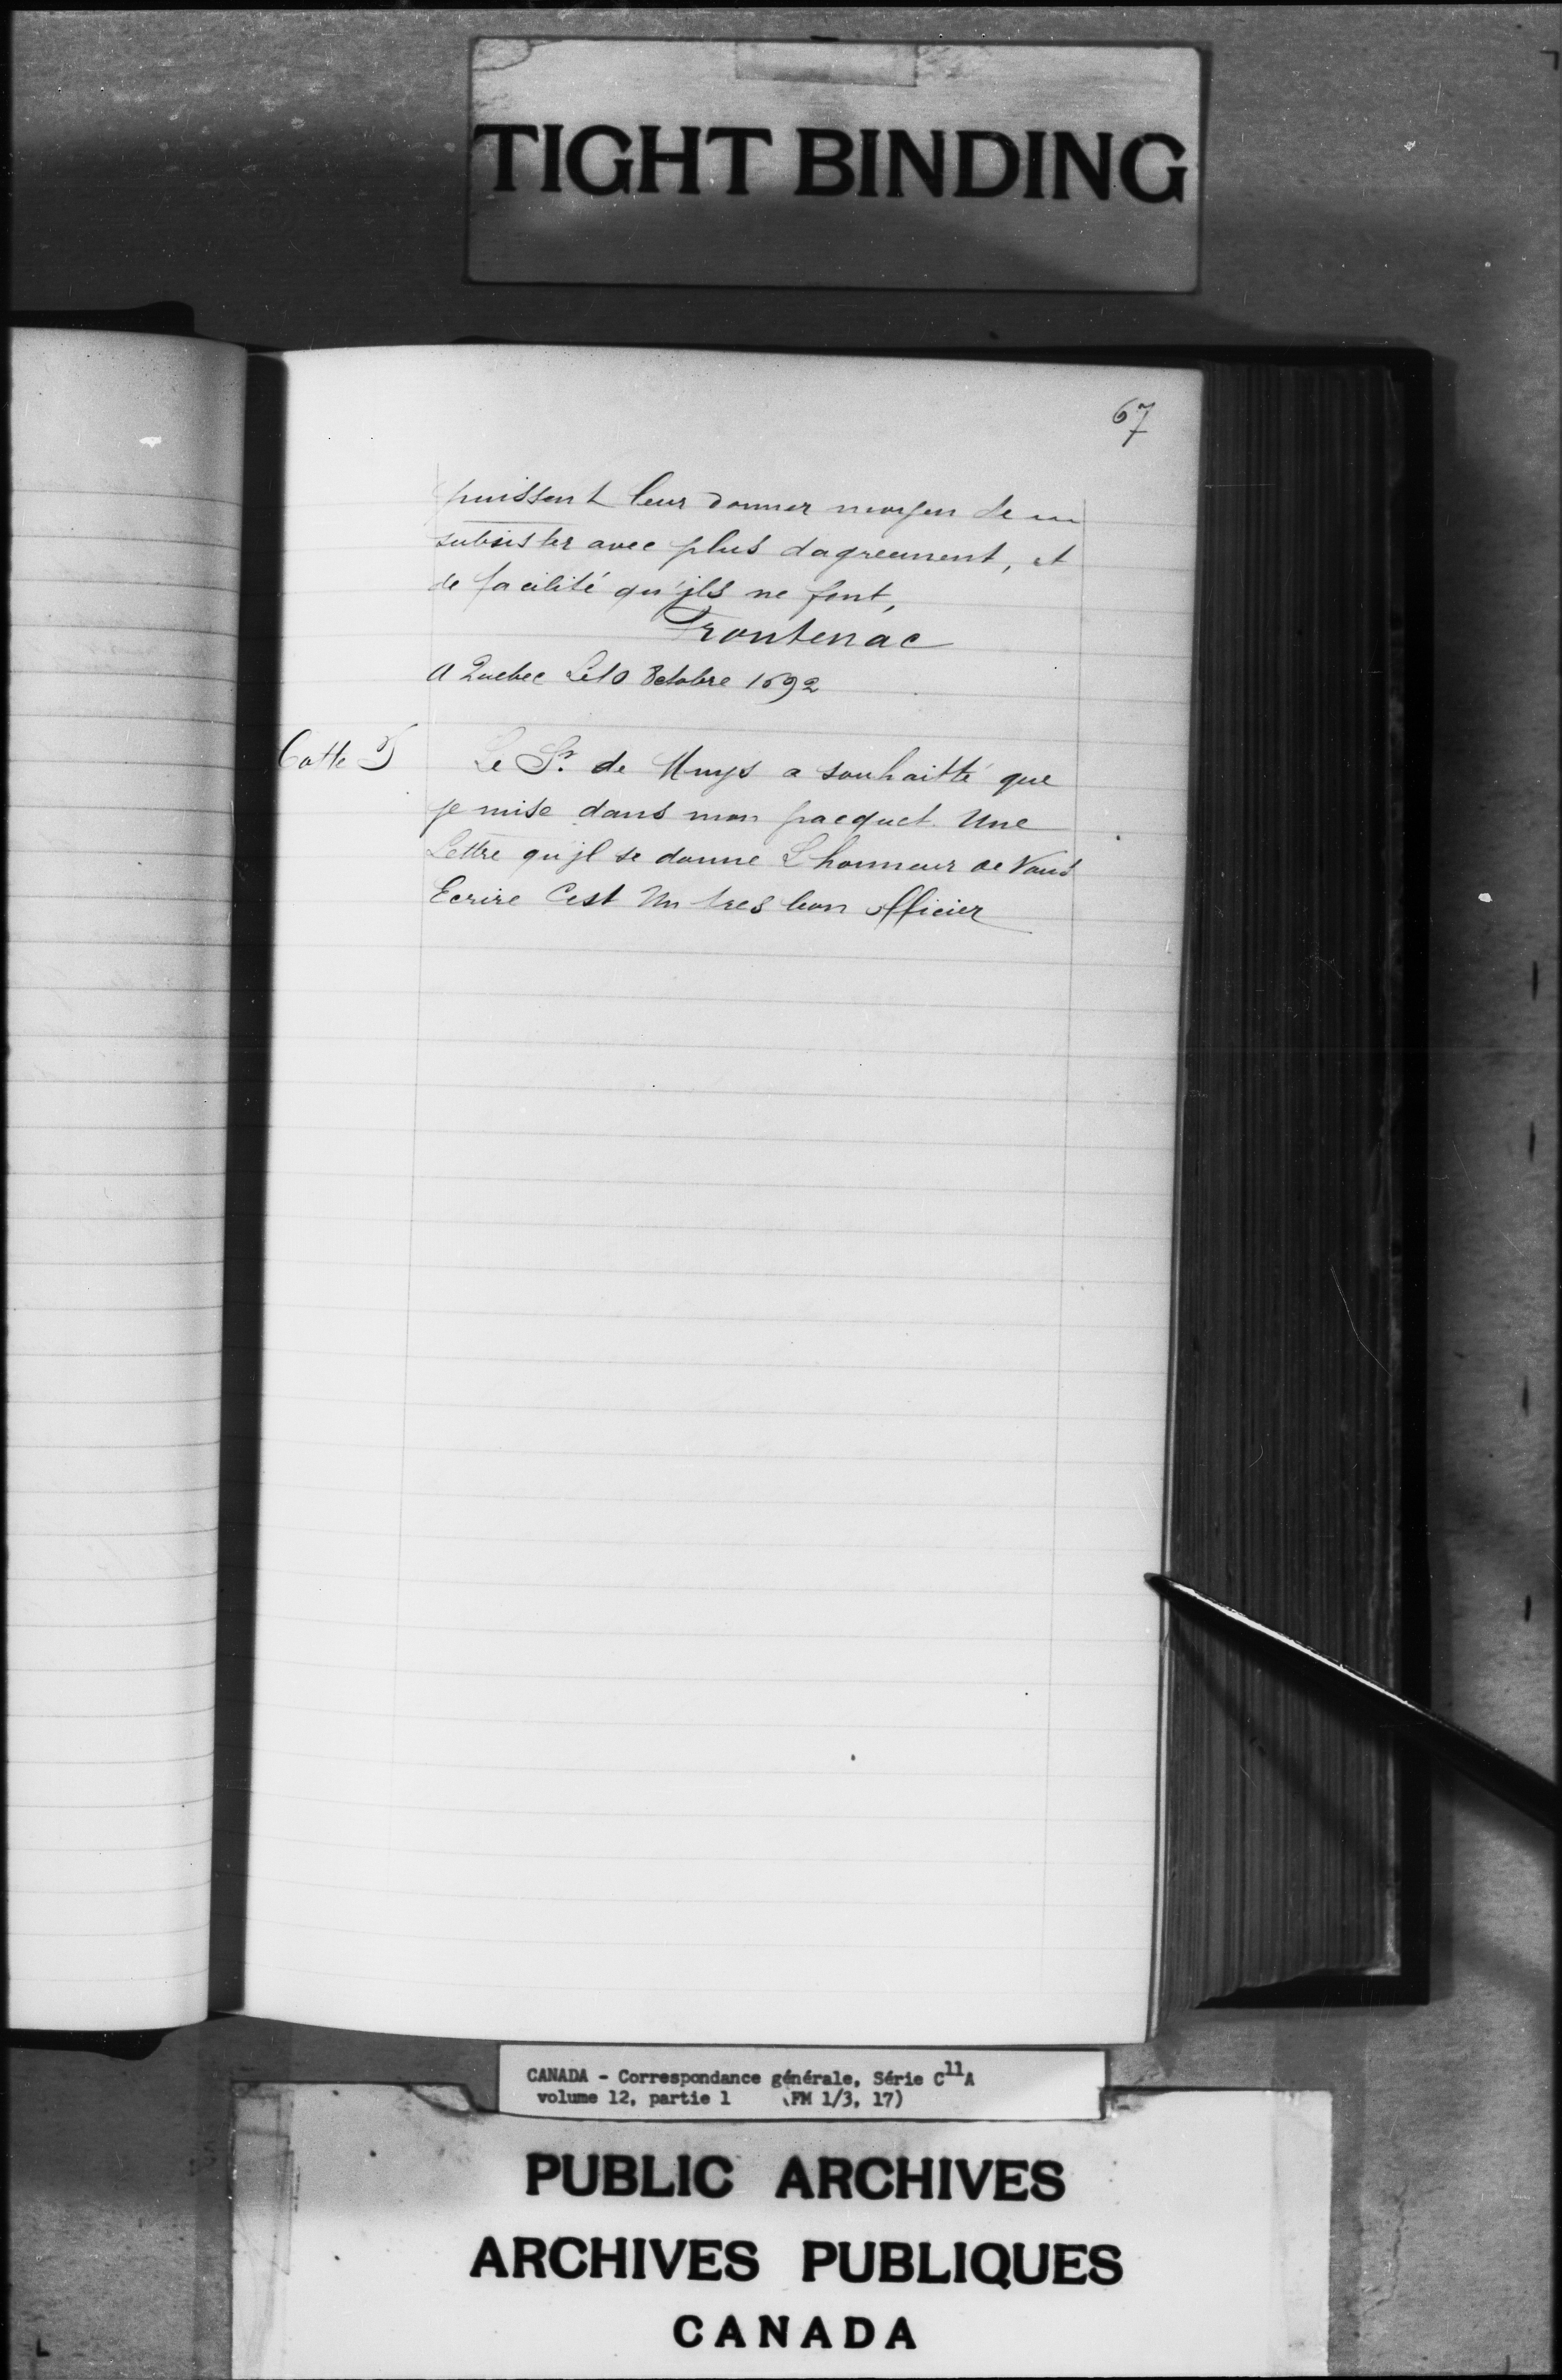 TIGHT BINDING
67
puissent leur donner moyen de
subsister avec plus dagreement, et
de facilité qu'jls ne font,
Frontenac
A Quebec Le 10 8ctobre 1692
Cotte
Le Sr. de Muys a souhaitté que
je mise dans mon pacquet Une
Lettre qu'jl se donne L'honneur de Vous
Ecrire Cest Un tres bon officier
CANADA - Correspondance générale, Série C11A
volume 12, partie 1 (FM 1/3, 17)
PUBLIC ARCHIVES
ARCHIVES PUBLIQUES
CANADA
L